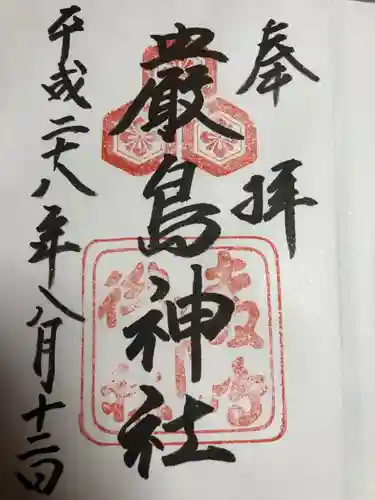 奉拝
厳島神社
平成二十八年八月十二日